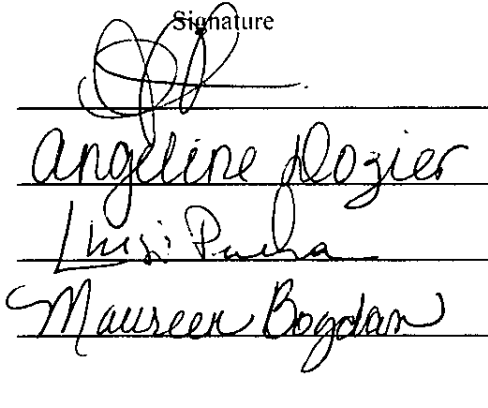 Signature
Angeline Dozier
Luigi
Maureen Bogdan